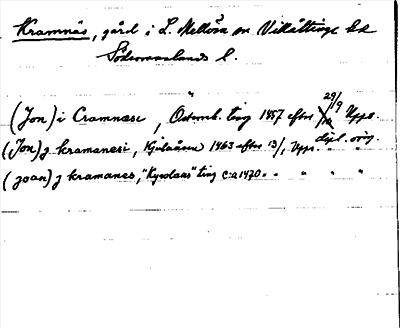 Kramnäs, gård i L. Mellösa sn Villåttinge hd
Södermanlands l.
(Jon) i Cramnæse, Østmb. ting 1457 efter 29/9 Uppl.
(Jon) j kramanesi, Kjulaåsen 1463 efter 13/1 Uppl. dipl. orig.
(joan) j kramanes, "Kywlaas" ting c:a 1470 " " " "